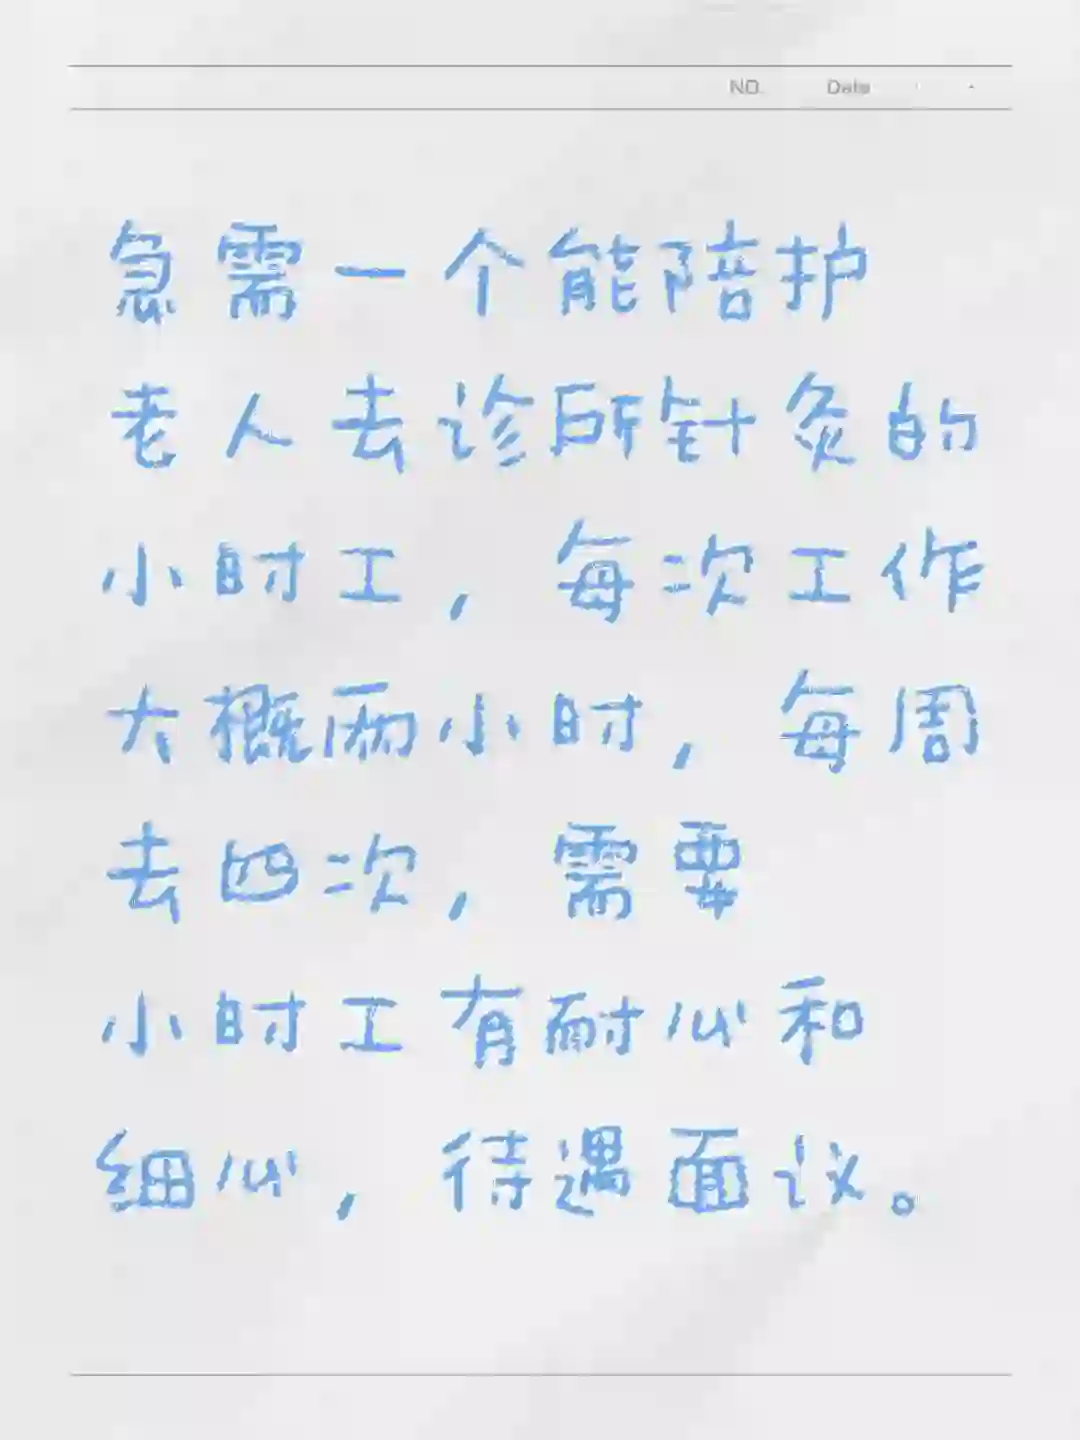 NO. Date
急需一个能陪护
老人去诊所针灸的
小时工，每次工作
大概两小时，每周
去四次，需要
小时工有耐心和
细心，待遇面议。